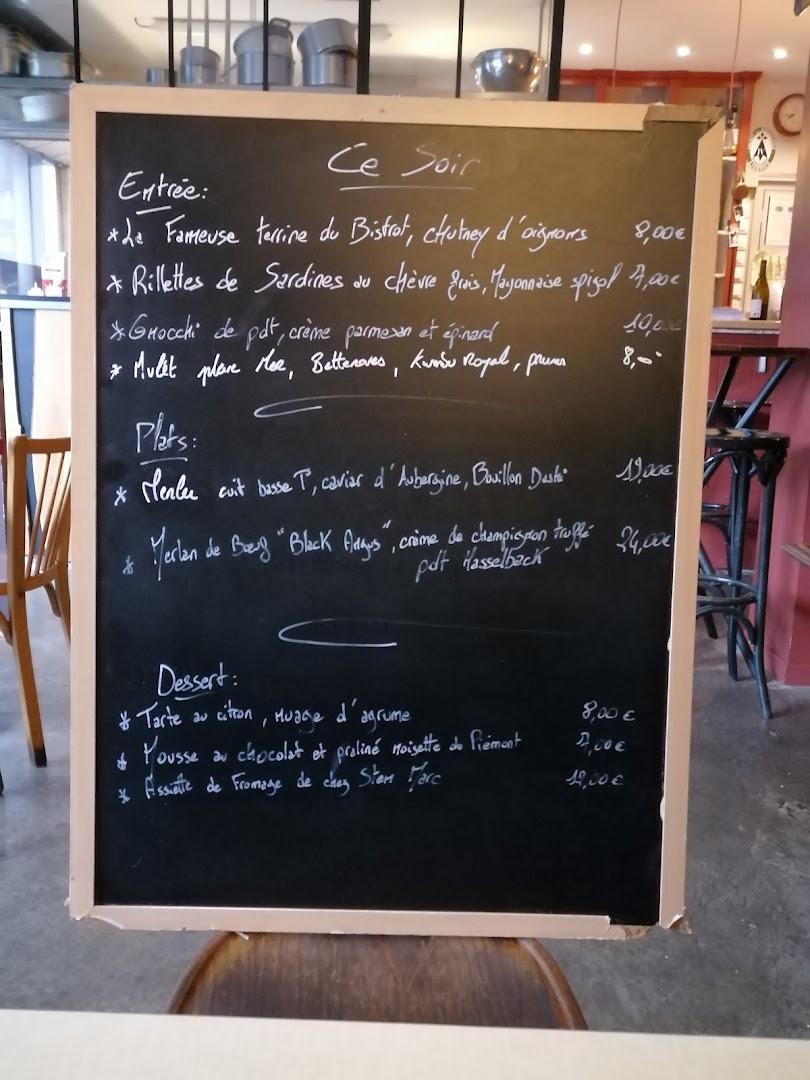 Ce Soir
Entrée:
* La Fameuse terrine du Bistrot, chutney d'oignons 8,00€
* Rillettes de Sardines au chèvre frais, Mayonnaise spigol 7,00€
* Gnocchi de pdt, crème parmesan et épinard 10,00€
* Mulet pleine Mer, Betteraves, Kumbu Royal, prunes 8,-
Plats:
* Merlu cuit basse T°, caviar d'Aubergine, Bouillon Dashi 19,00€
* Merlan de Bœuf "Black Angus", crème de champignon truffé 24,00€
pdt Hasselback
Dessert:
* Tarte au citron, nuage d'agrume 8,00€
* Mousse au chocolat et praliné noisette du Piémont 7,00€
* Assiette de Fromage de chez Marc 12,00€